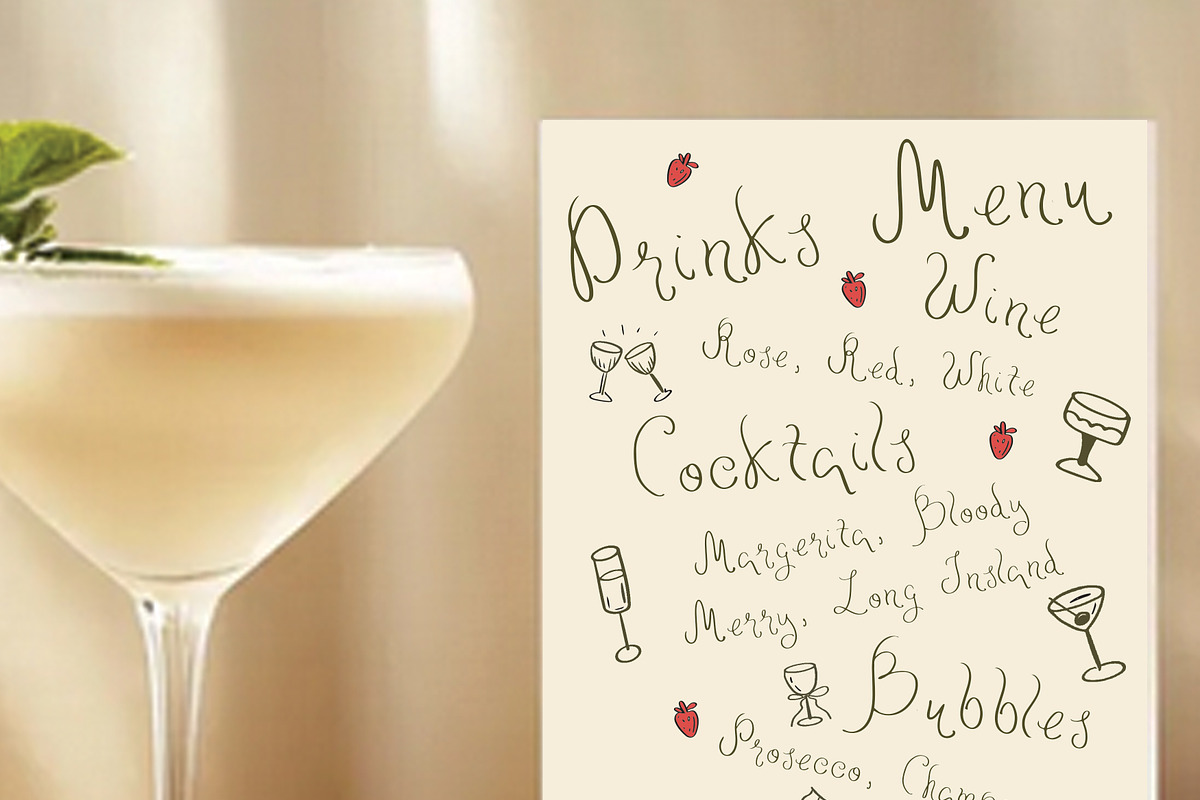 Drinks Menu
Wine
Rose, Red, White
Cocktails
Margerita, Bloody
Merry, Long Insland
Bubbles
Prosecco, Champ